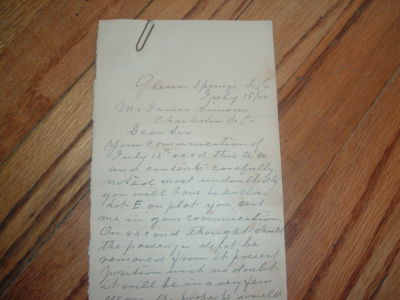 Glenn Springs S.C.
July 15/04
Mr James Simons
Charleston S.C.
Dear Sir
Your comunication of
July 13th recd this A.M.
and contents carefully
noted most undoubtedly
you will have to
Lot E on plot you sent
me in your comunication
On second thought should
the passenger depot be
removed from it present
position wich no doubt
it will be in a very few
years the property would